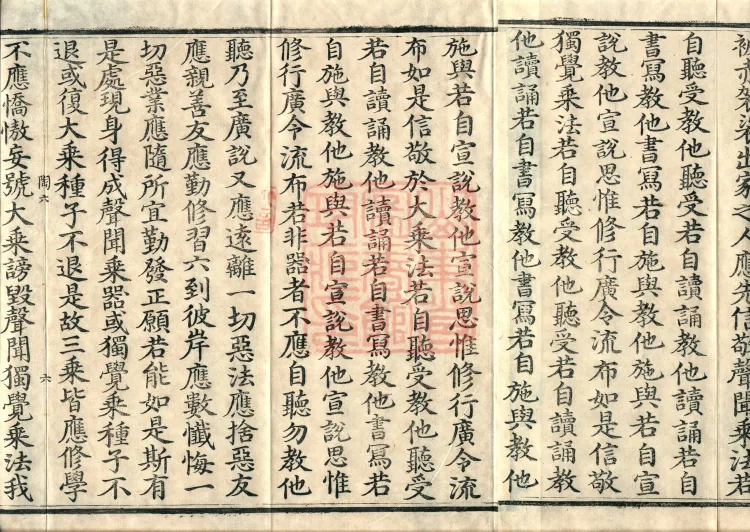 自聽受教他聽受若自讀誦教他讀誦若自
書寫教他書寫若自施與教他施與若自宣
說教他宣說思惟修行廣令流布如是信敬
獨覺乘法若自聽受教他聽受若自讀誦教
他讀誦若自書寫教他書寫若自施與教他
施與若自宣說教他宣說思惟修行廣令流
布如是信敬於大乘法若自聽受教他聽受
若自讀誦教他讀誦若自書寫教他書寫若
自施與教他施與若自宣說教他宣說思惟
修行廣令流布若非器者不應自聽勿教他
聽乃至廣說又應遠離一切惡法應捨惡友
應親善友應勤修習六到彼岸應數懺悔一
切惡業應隨所宜勤發正願若能如是斯有
是處現身得成聲聞乘器或獨覺乘種子不
退或復大乘種子不退是故三乘皆應修學
陶六 六
不應憍慠妄號大乘謗毀聲聞獨覺乘法我